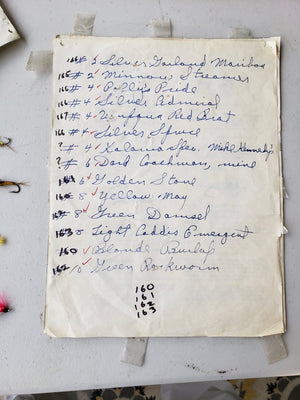 166 # 5 Silver Garland Marabou
165 # 2 Minnow Streamer
166 # 4 Polly's Pride
166 # 4 Silver Admiral
167 # 4 Umpqua Red Brat
166 # 6 Silver Spruce
? # 4 Kalama Spec. Mike Kennedy's
? # 6 Dark Coachman, mine
161 6 Golden Stone
160 # 8 Yellow May
162 # 8 Green Damsel
163 8 Light Caddis Emergent
160 Blonde Burlap
162 10 Green Rockworm
160
161
162
163